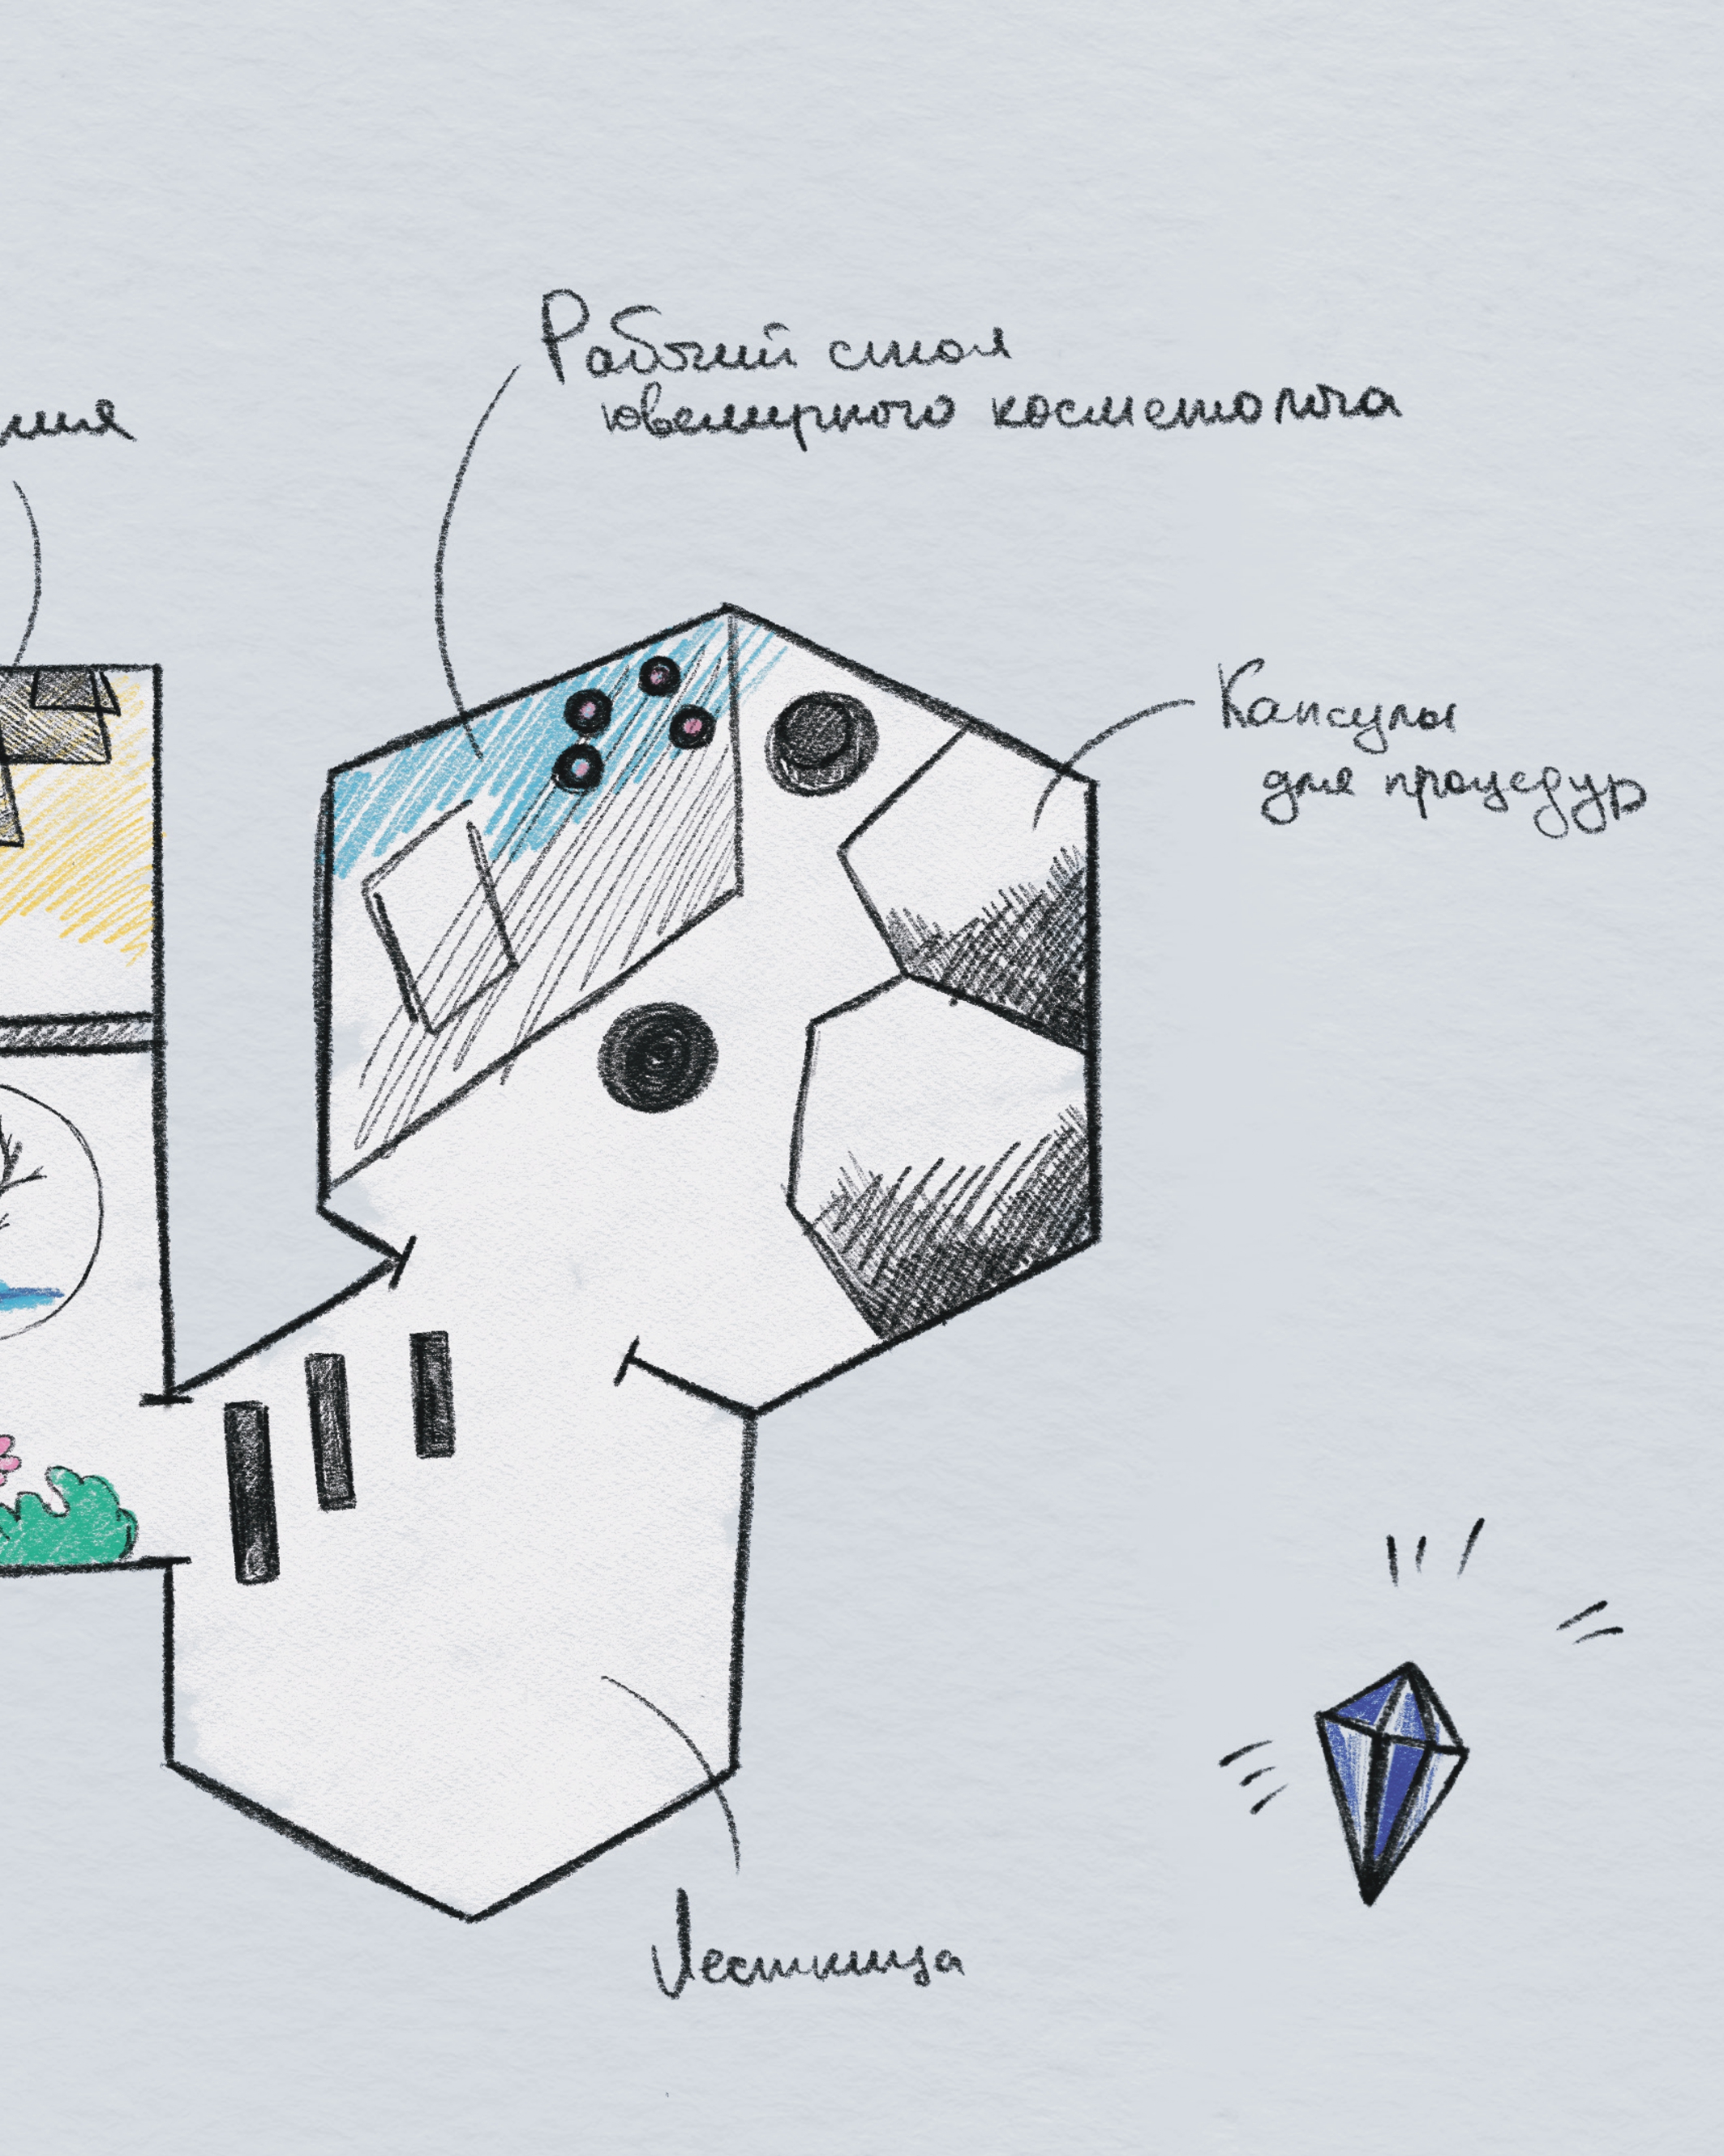 Рабочий стол
ювелирного косметолога
Капсулы
для процедур
Лестница